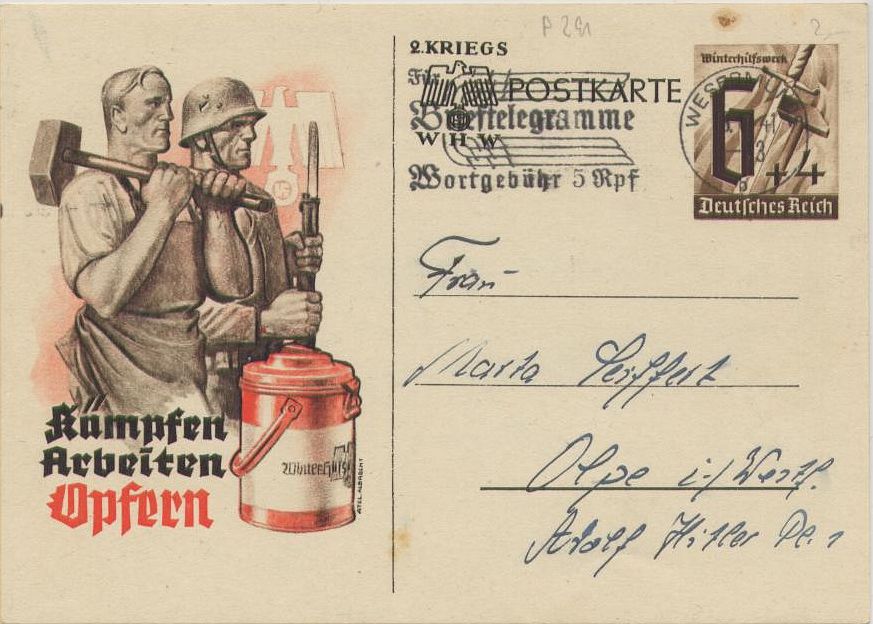 P 291
2.
2. KRIEGS
POSTKARTE
WHW
Für
Brieftelegramme
Wortgebühr 5 Rpf
Winterhilfswerk
6
+4
Deutsches Reich
Kämpfen
Arbeiten
Opfern
Winterhilfs
ATEL. ALBRECHT
Frau
Maria Seiffert
Olpe i/Westf.
Adolf Hitler Pl. 1